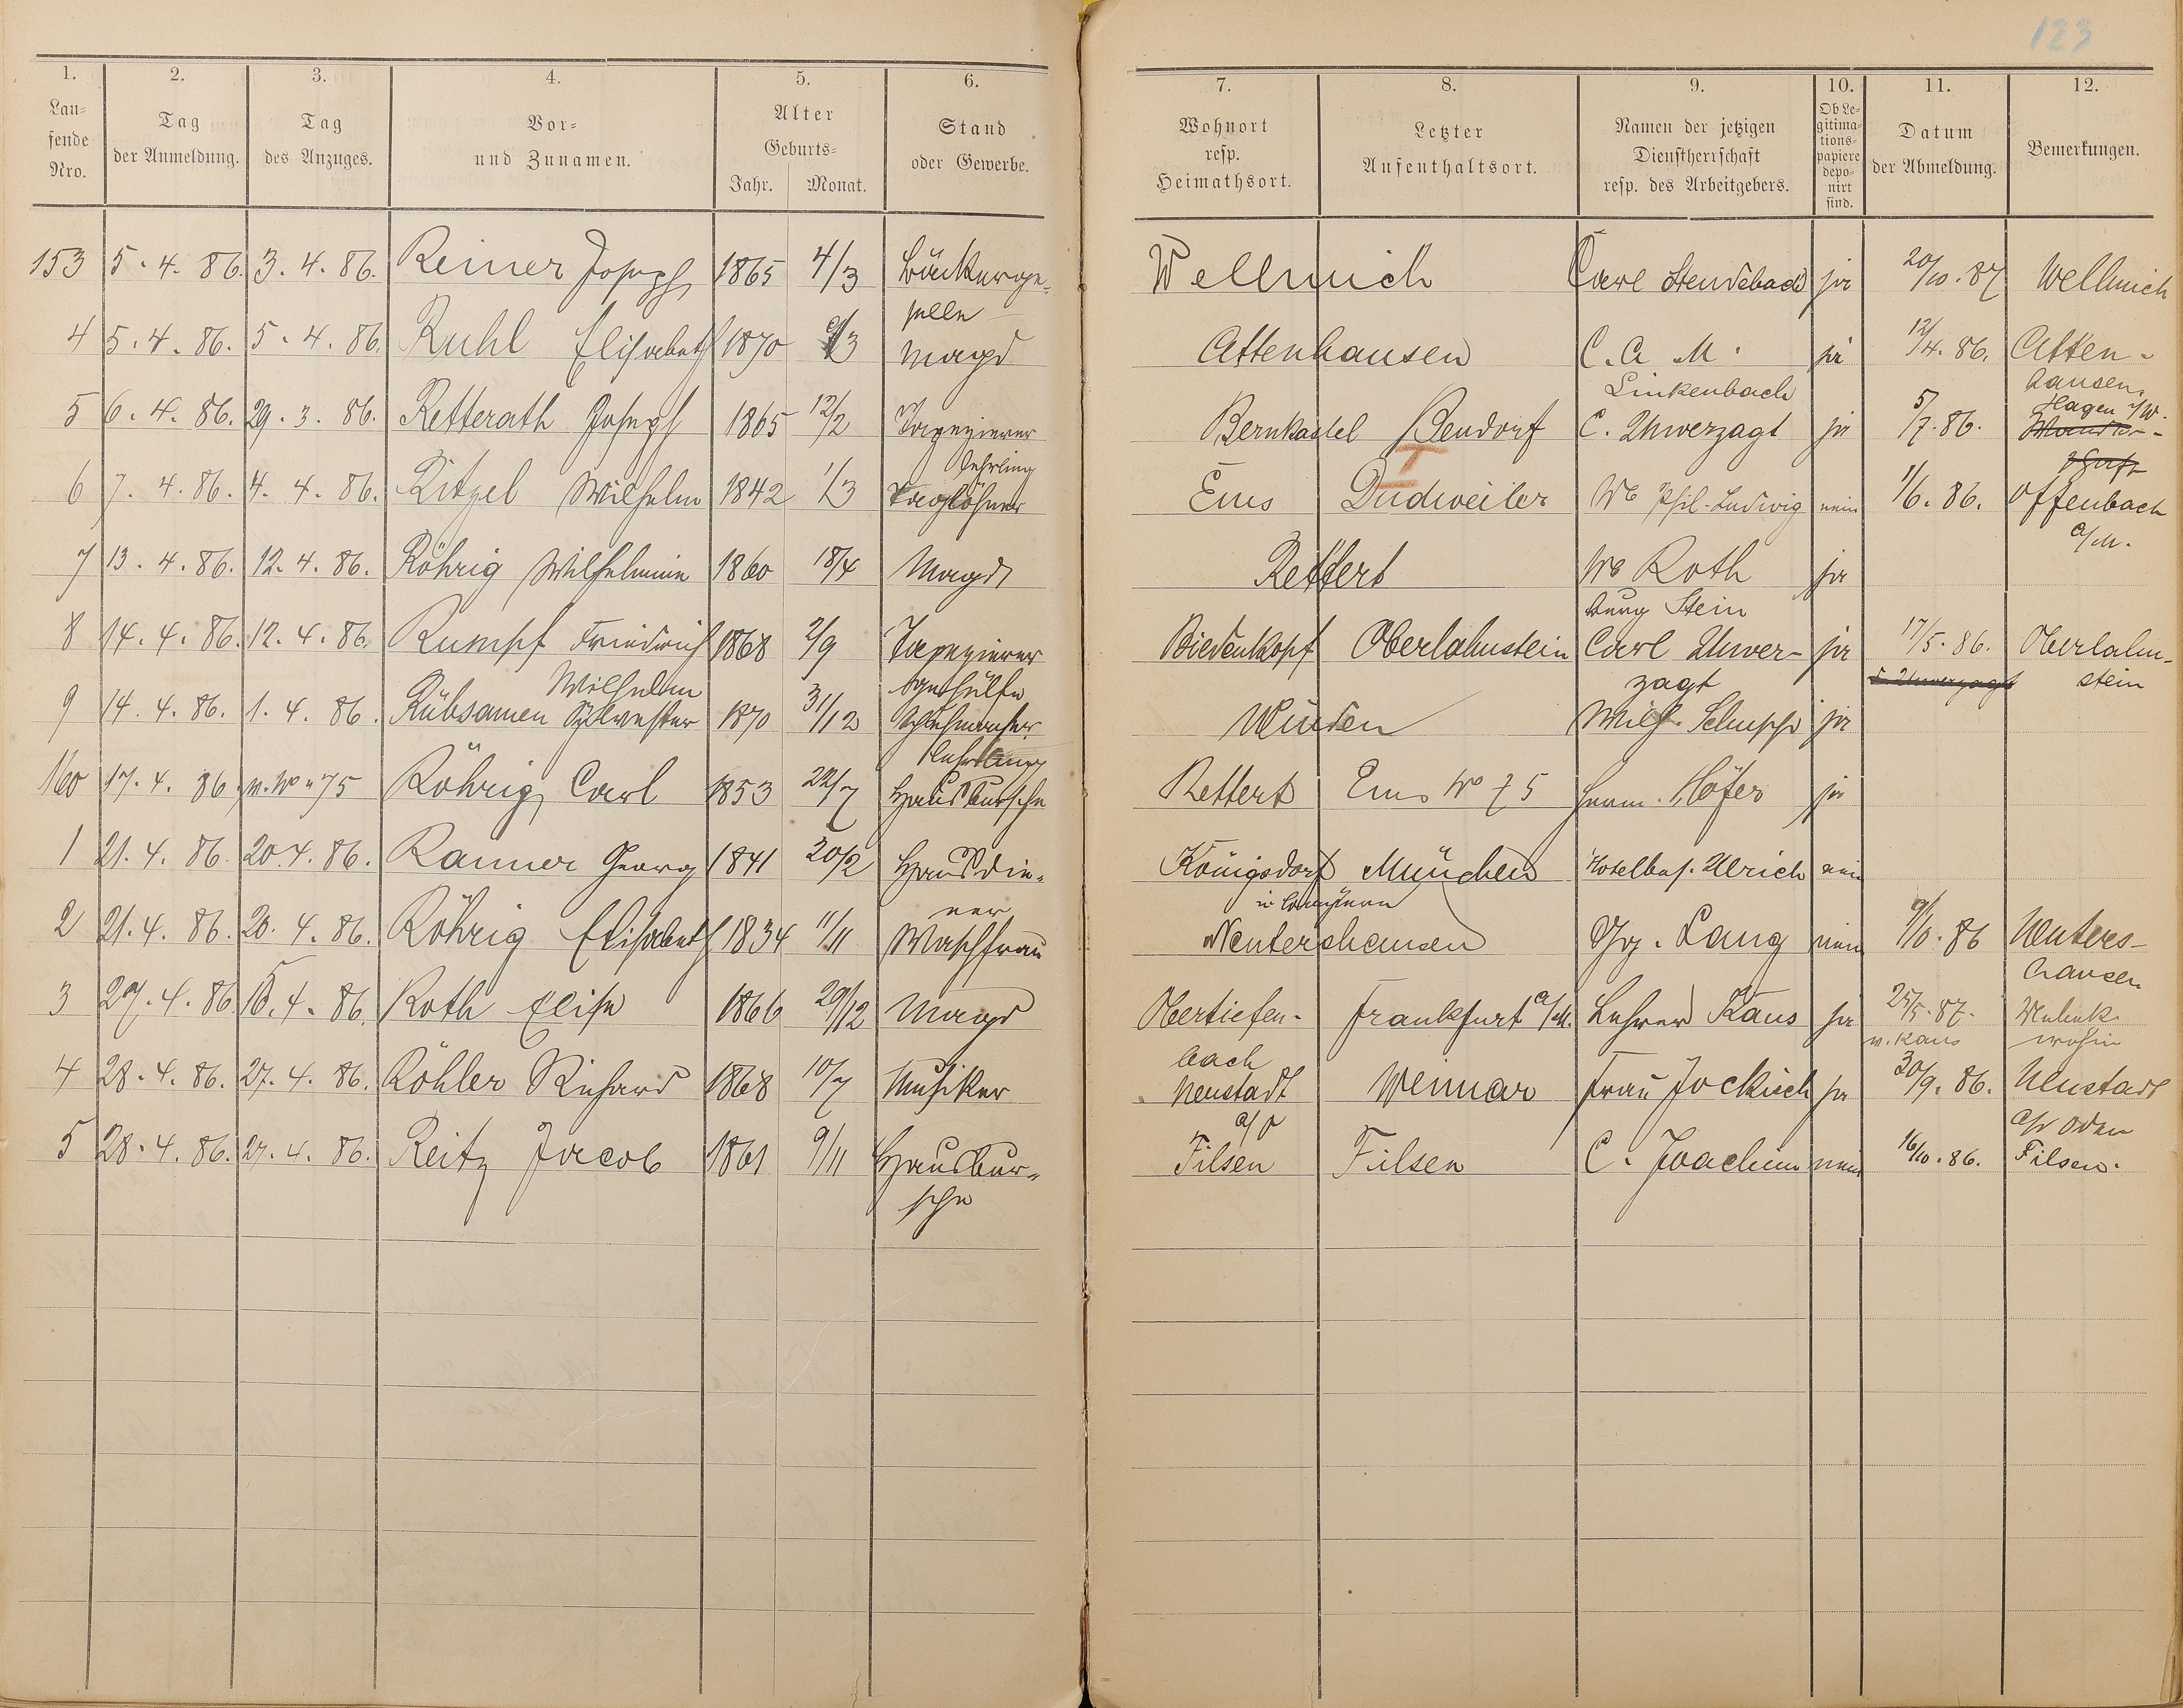 123
1. 2. 3. 4. 5. 6. 7. 8. 9. 10. 11. 12.
Lau-
fende
Nro.
Tag
der Anmeldung.
Tag
des Anzuges.
Vor-
und Zunamen.
Alter
Geburts-
Jahr. Monat.
Stand
oder Gewerbe.
Wohnort
resp.
Heimathsort.
Letzter
Aufenthaltsort.
Namen der jetzigen
Dienstherrschaft
resp. des Arbeitgebers.
Ob Le-
gitima-
tions-
papiere
depo-
nirt
sind.
Datum
der Abmeldung.
Bemerkungen.
153 5. 4. 86. 3. 4. 86. Reiner Joseph 1865 4/3 Bäckerge- Wellmich Carl ja 20/10. 87 Wellmich
selle
4 5. 4. 86. 5. 4. 86. Ruhl Elisabeth 1870 /3 Magd Attenhausen C. A. M. ja 12/4. 86. Atten-
Linkenbach hausen
5 6. 4. 86. 29. 3. 86. Retterath Joseph 1865 12/2 Tapezierer Bernkastel Bendorf C. Unverzagt ja 5/7. 86. Hagen i/W.
lehrling
6 7. 4. 86. 4. 4. 86. Ritzel Wilhelm 1842 1/3 Taglöhner Ems Dudweiler We Phil. Ludwig nein 1/6. 86. Offenbach
a/M.
7 13. 4. 86. 12. 4. 86. Röhrig Wilhelmine 1860 18/4 Magd Rettert We Roth ja
Burg Stein
8 14. 4. 86. 12. 4. 86. Rumpf Friedrich 1868 2/9 Tapezierer Biedenkopf Oberlahnstein Carl Unver- ja 17/5. 86. Oberlahn-
Wilhelm gehülfe zagt C. Unverzagt stein
9 14. 4. 86. 1. 4. 86. Rübsamen Sylvester 1870 31/12 Schuhmacher Winden Wilh. Schupp ja
Lehrling
160 17. 4. 86. v. No 75 Röhrig Carl 1853 22/7 Hausbursche Rettert Ems No 75 Herm. Höfer ja
1 21. 4. 86. 20. 4. 86. Ranner Georg 1841 20/2 Hausdie- Königsdorf München Hotelbes. Ulrich nein
ner in Bayern
2 21. 4. 86. 20. 4. 86. Röhrig Elisabeth 1834 11/11 Waschfrau Nentershausen Gg. Lang nein 9/10. 86 Nenters-
hausen
3 27. 4. 86. 15. 4. 86. Roth Elise 1866 29/12 Magd Obertiefen- Frankfurt a/M. Lehrer Kaus ja 25/5. 87. Unbek.
bach v. Kaus wohin
4 28. 4. 86. 27. 4. 86. Röhler Richard 1868 10/7 Musiker Neustadt Weimar Frau Jockisch ja 30/9. 86. Neustadt
a/O a/d Oder
5 28. 4. 86. 27. 4. 86. Reitz Jacob 1861 9/11 Hausbur- Filsen Filsen C. Joachim nein 16/10. 86. Filsen.
sche